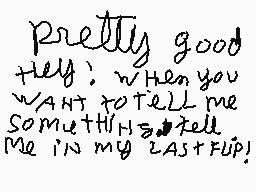 pretty good
Hey! wHen you
wANt to tell me
sometHing tell
me iN my LAst FLip!